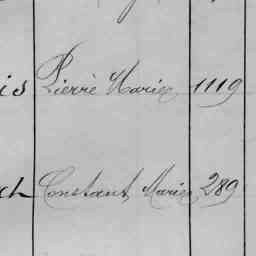 is Pierre Marie 1119
ch Constant Marie 289